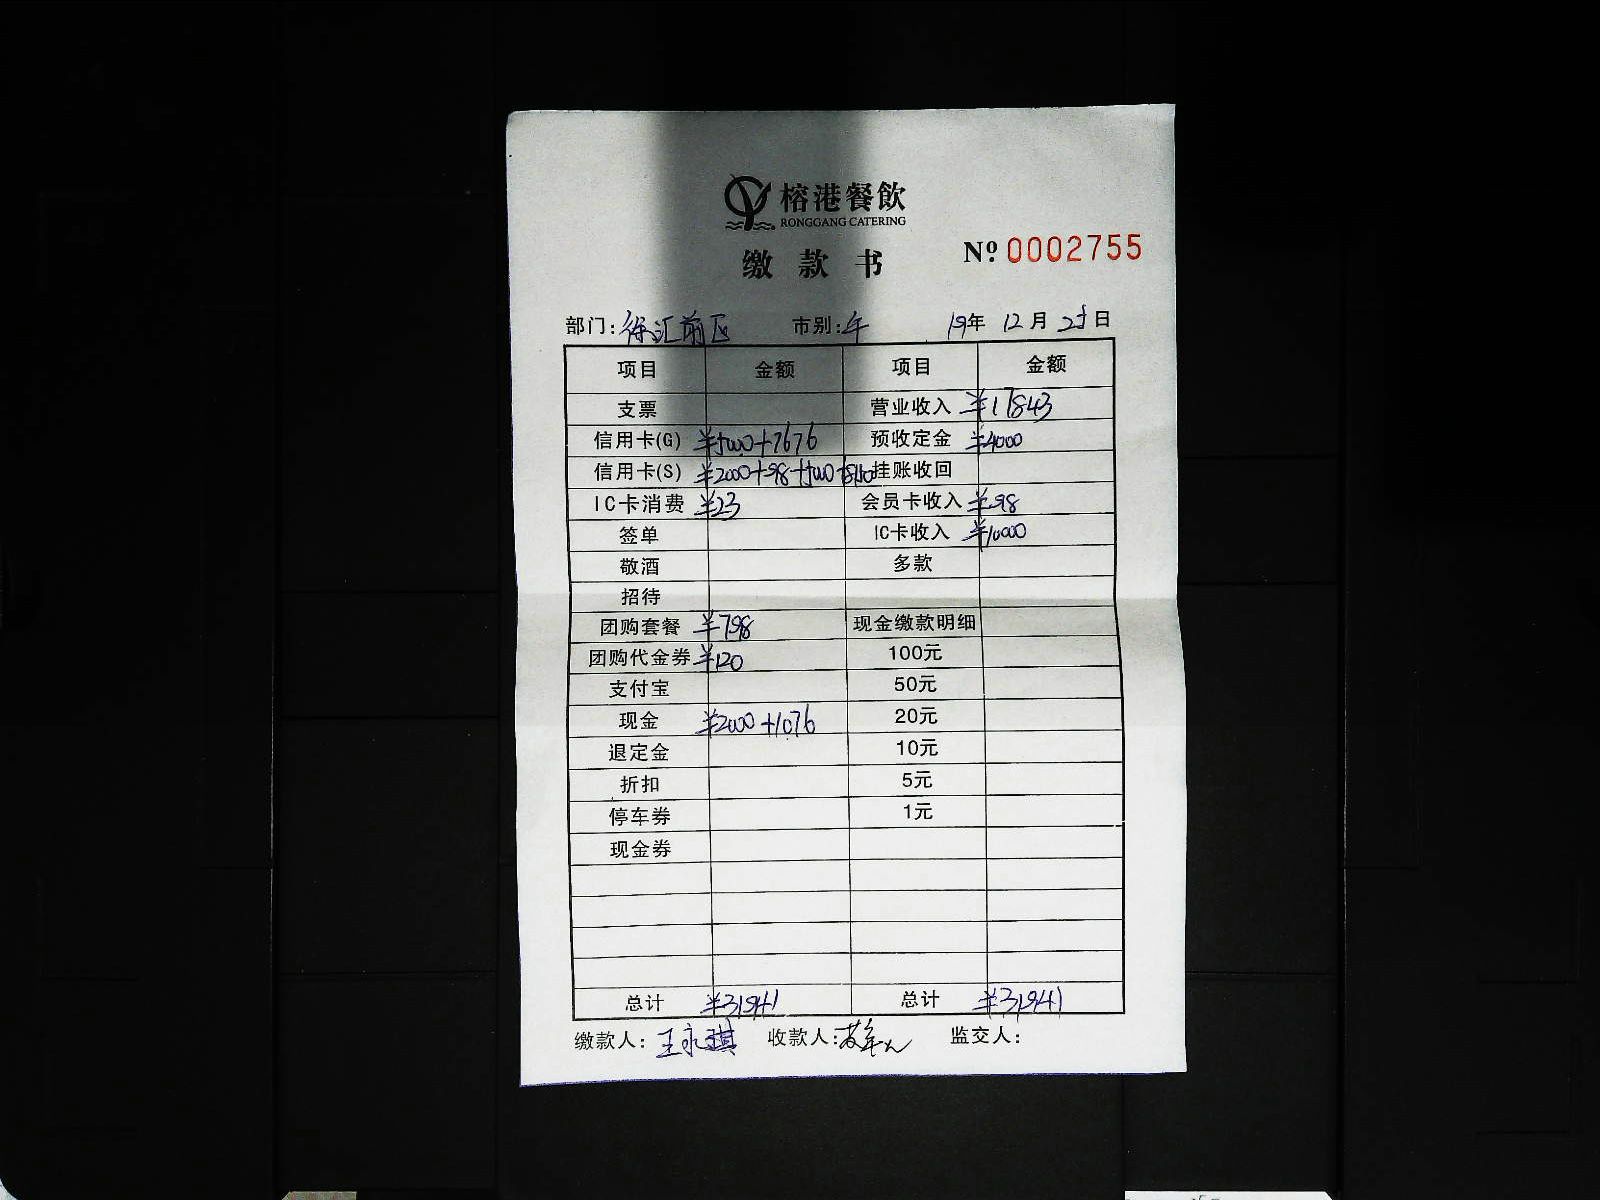 榕港餐飲
RONGGANG CATERING
缴款书 Nº 0002755
部门: 徐汇前区 市别: 午 19年 12月 25日
项目 金额 项目 金额
支票 营业收入 ¥17843
信用卡(G) ¥5000+7676 预收定金 ¥4000
信用卡(S) ¥2000+98+5000+8150 挂账收回
IC卡消费 ¥23 会员卡收入 ¥98
签单 IC卡收入 ¥10000
敬酒 多款
招待
团购套餐 ¥798 现金缴款明细
团购代金券 ¥120 100元
支付宝 50元
现金 ¥2000+1076 20元
退定金 10元
折扣 5元
停车券 1元
现金券
总计 ¥31941 总计 ¥31941
缴款人: 王永琪 收款人: 监交人: